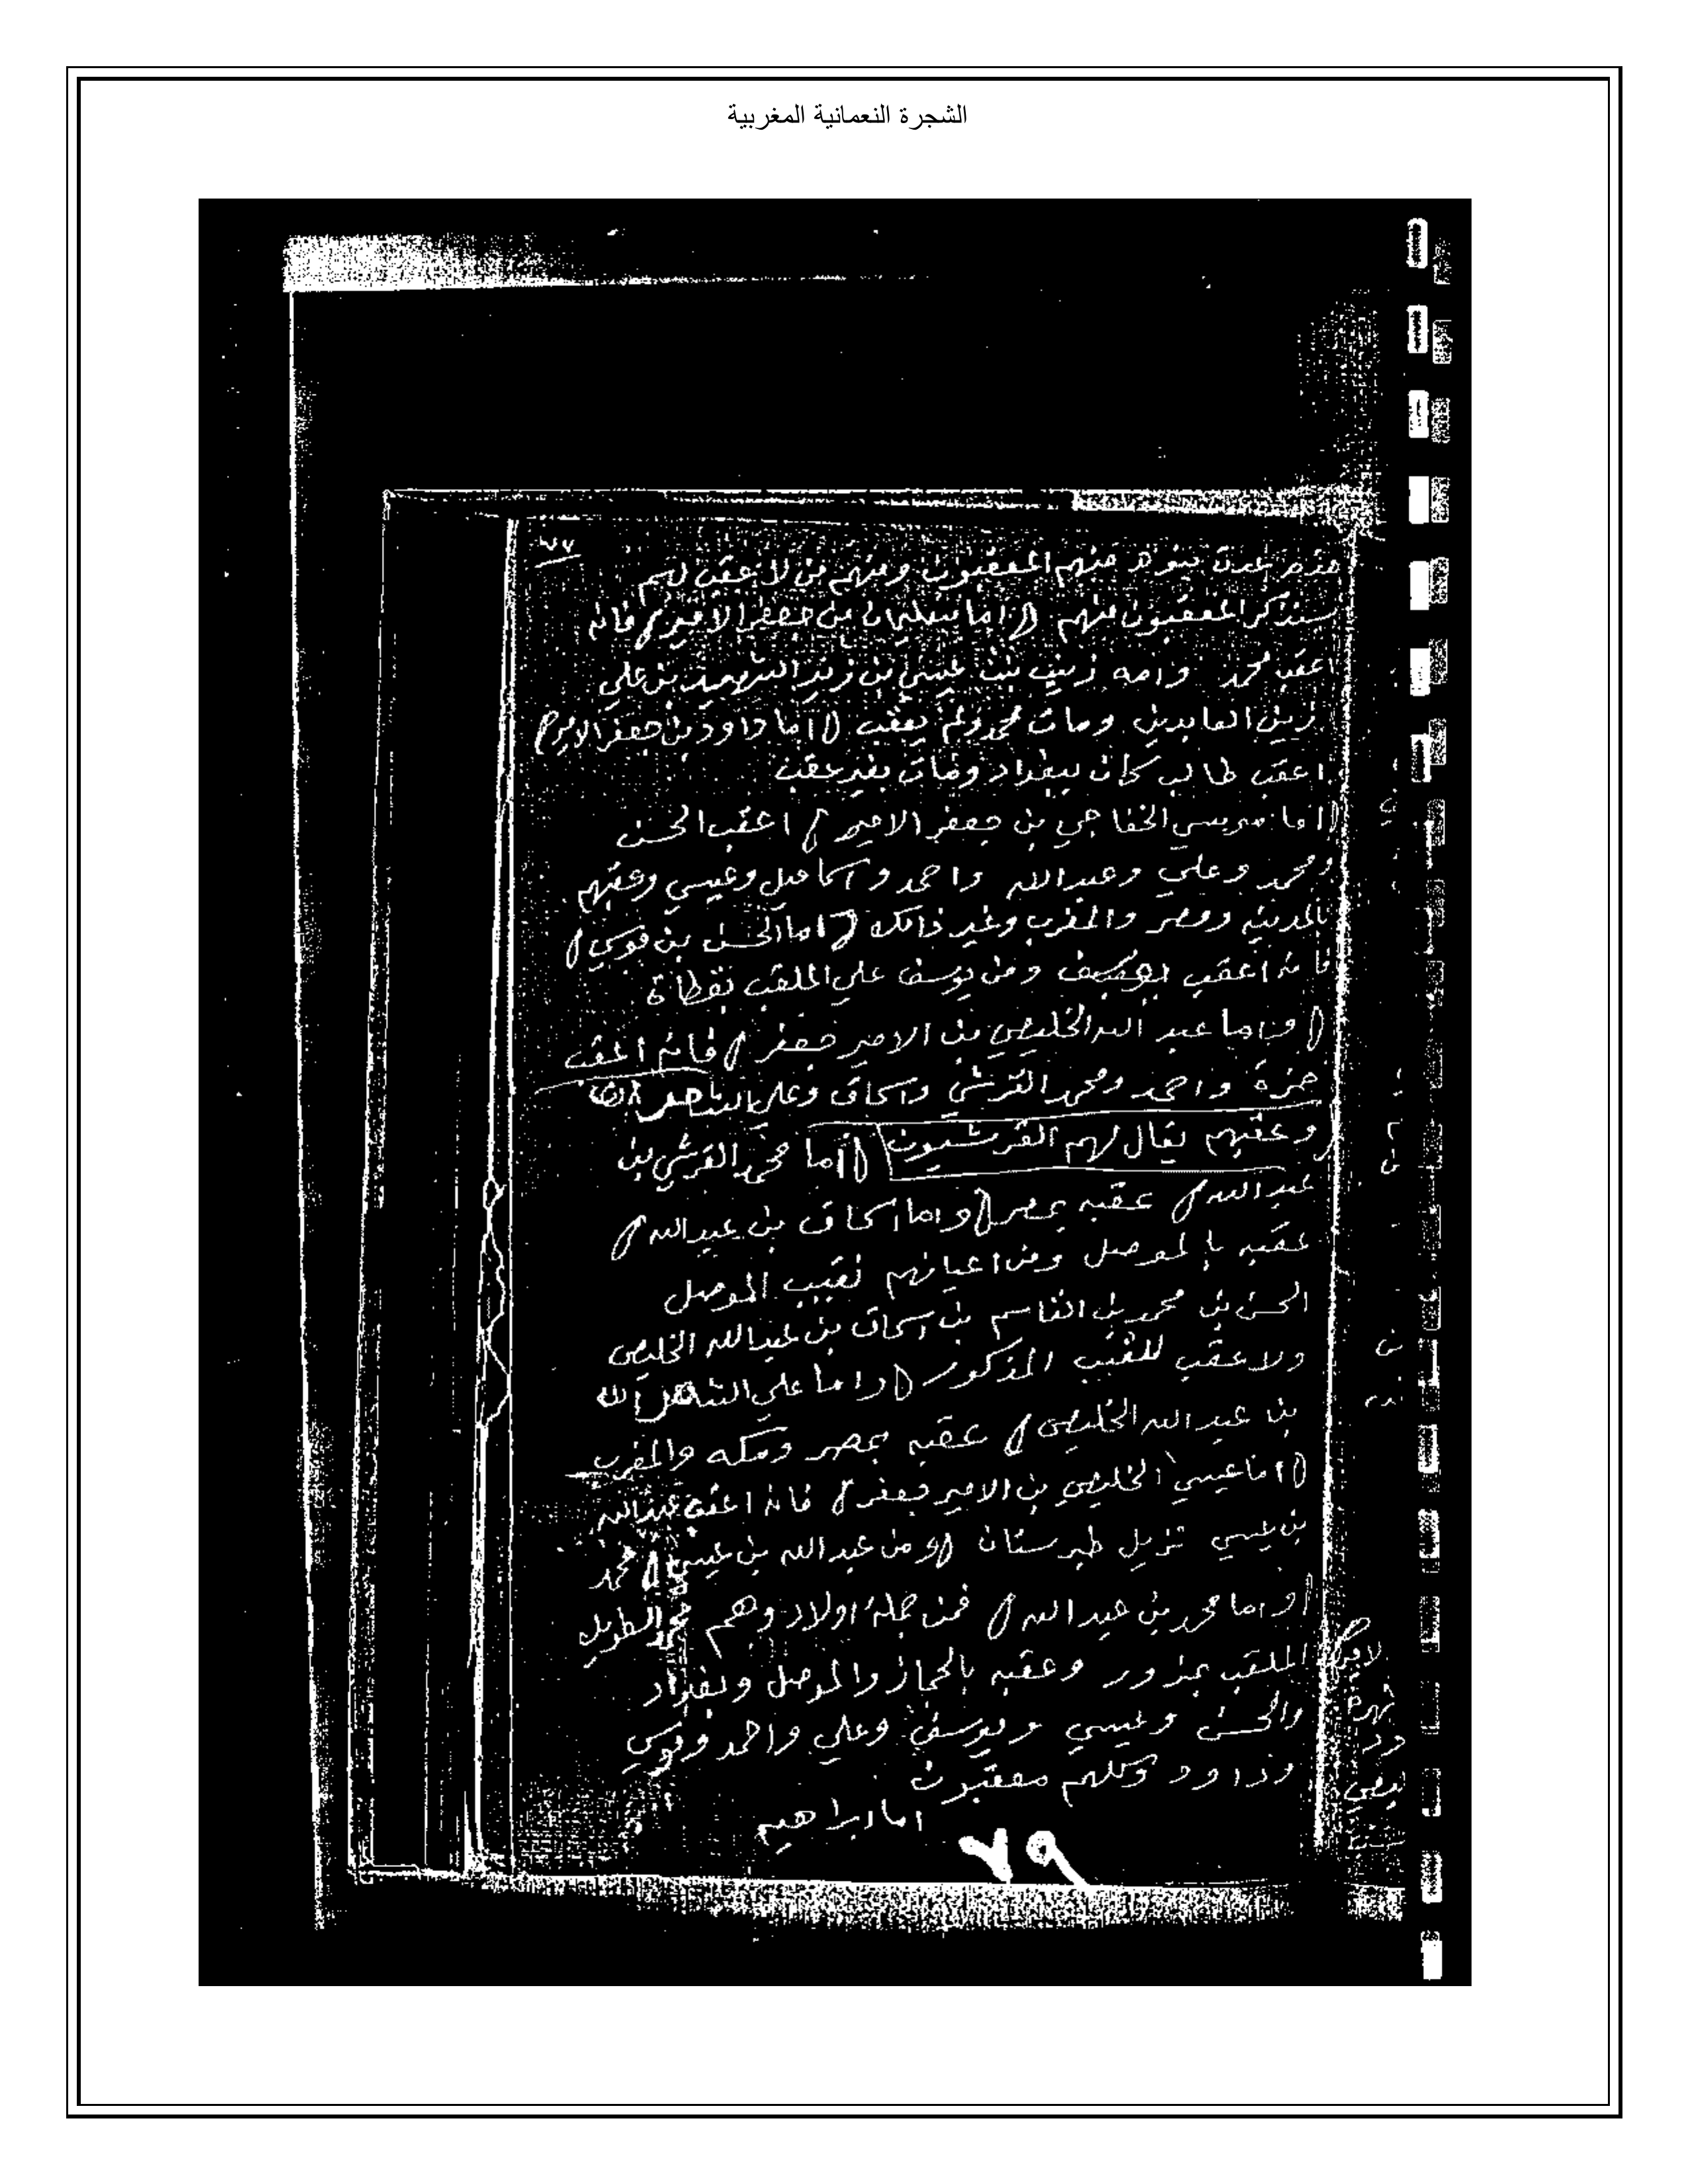 الشجرة النعمانية المغربية
٧٧
منهم المعقبون ومنهم من لا عقب لهم
سنذكر المعقبون منهم () اما سليمان بن جعفر الامير () فانه
اعقب محمد وامه زينب بنت عيسي بن زيد الشهيد بن علي
زين العابدين ومات محمد ولم يعقب () اما داود بن جعفر الامير ()
اعقب طالب كان ببغداد ومات بغير عقب
() اما الخفاجي بن جعفر الامير () اعقب الحسن
ومحمد وعلي وعبدالله واحمد واسماعيل وعيسي وعقبهم
بالمدينه ومصر والمغرب وغير ذالك () اما الحسن بن موسي ()
فانه اعقب يوسف ومن يوسف علي الملقب
() واما عبد الله الخليصي بن الامير جعفر () فانه اعقب
حمزة واحمد ومحمد القرشي واسحاق وعلي
وعقبهم يقال لهم القرشيون () اما محمد القرشي بن
عبدالله () عقبه بمصر () واما اسحاق بن عبدالله ()
عقبه بالموصل ومن اعيانهم نقيب الموصل
الحسن بن محمد بن القاسم بن اسحاق بن عبدالله الخليصي
ولا عقب للنقيب المذكور () واما علي
بن عبدالله الخليصي () عقبه بمصر ومكه والمغرب
() اما عيسي الخليصي بن الامير جعفر () فانه اعقب عبدالله
بن عيسي نزيل طبرستان () ومن عبدالله بن عيسي () محمد
() واما محمد بن عبدالله () فمن جملة اولاد وهم محمد الطويل
الملقب وعقبه بالحجاز والموصل وبغداد
والحسن وعيسي ويوسف وعلي واحمد وموسي
وداود وكلهم معقبون
اما ابراهيم
٧٩